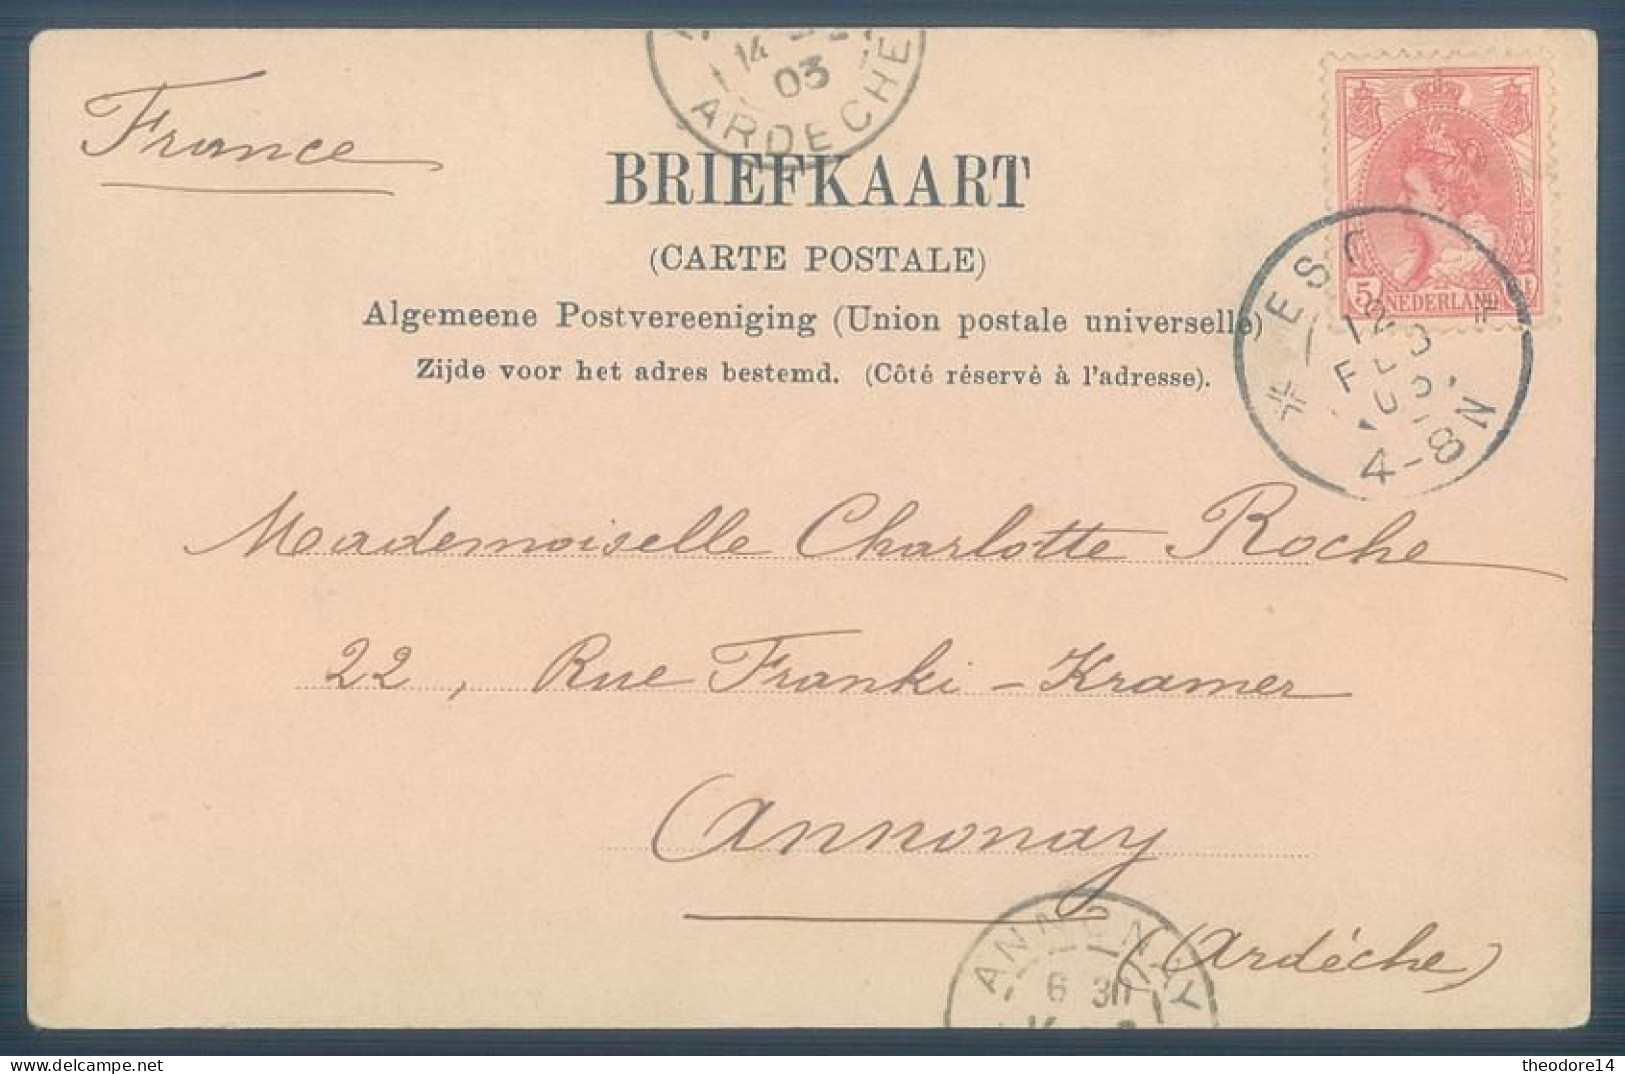 14
03
ARDECHE
France
BRIEFKAART
(CARTE POSTALE)
Algemeene Postvereeniging (Union postale universelle)
Zijde voor het adres bestemd. (Côté réservé à l'adresse).
5 NEDERLAND
12
FEB
4-8N
Mademoiselle Charlotte Roche
22, Rue Franki-Kramer
Annonay
(Ardèche)
ANNONAY
6 30
theodore14